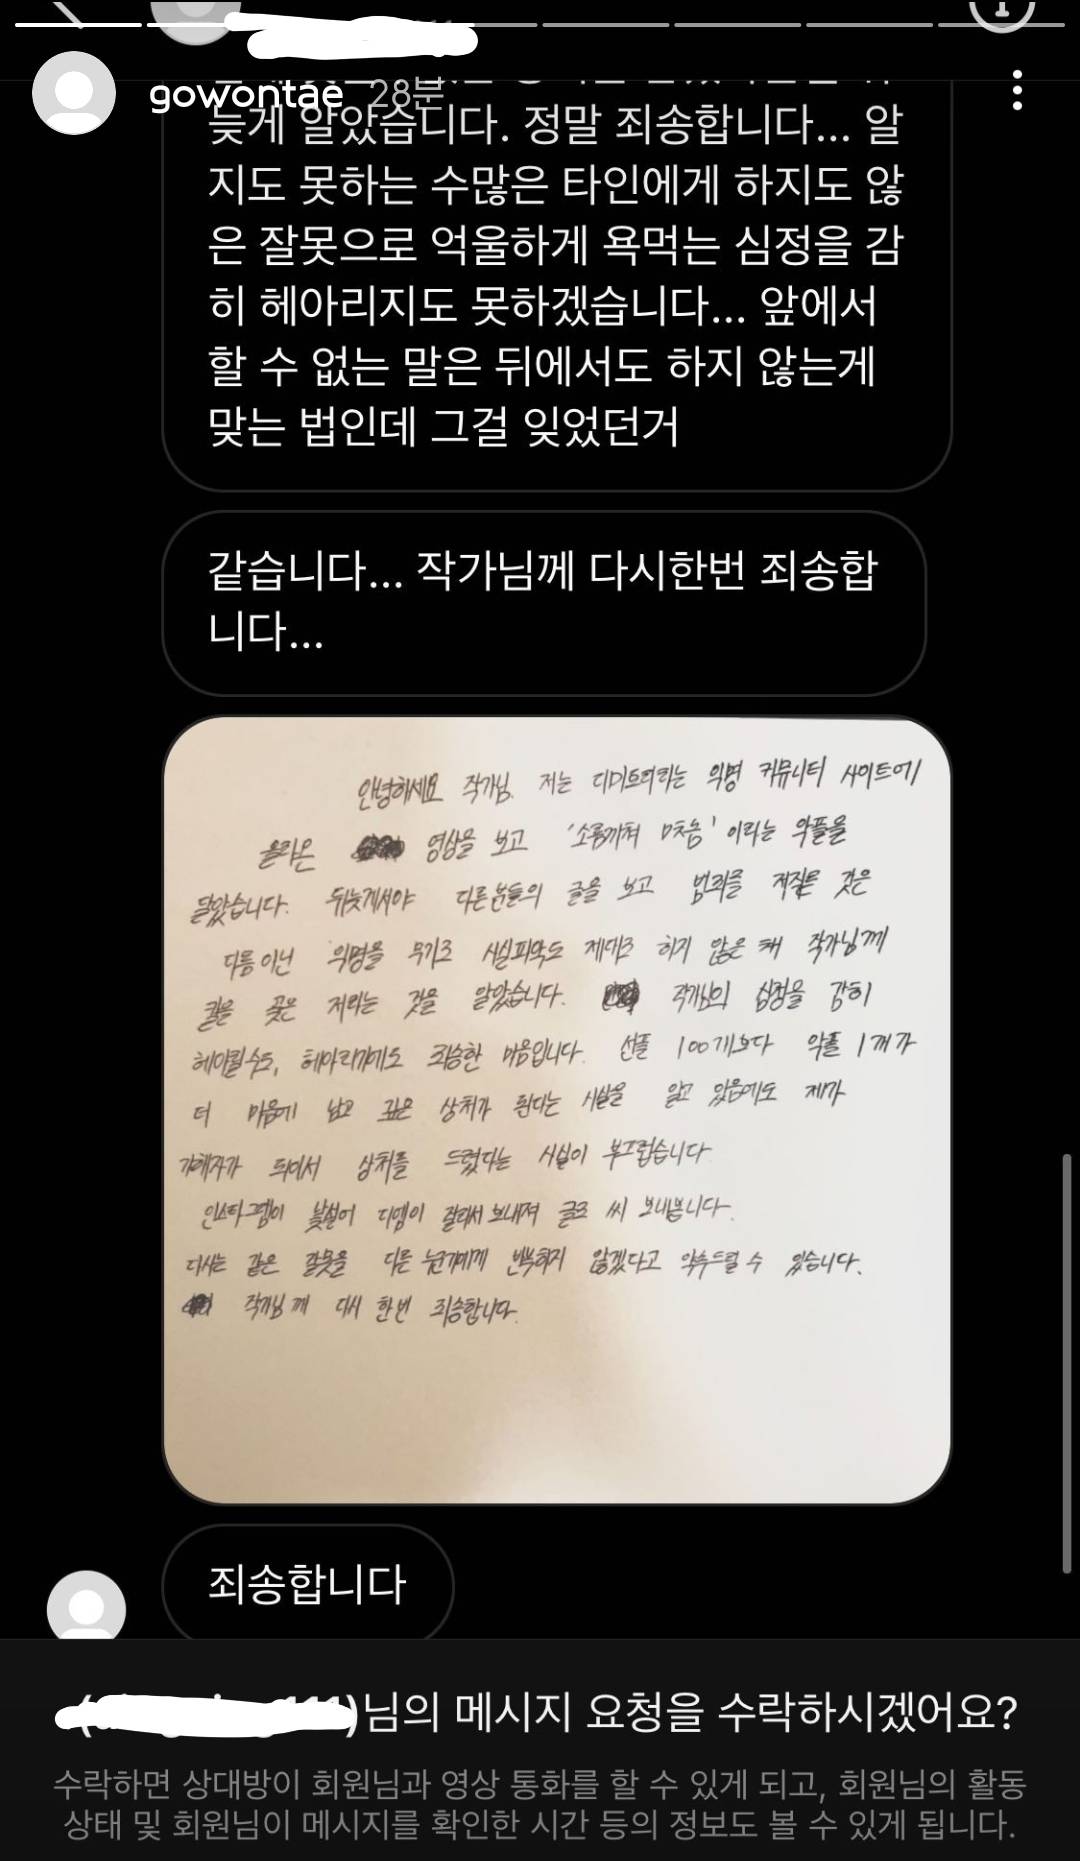 gowontae 28분
늦게 알았습니다. 정말 죄송합니다... 알
지도 못하는 수많은 타인에게 하지도 않
은 잘못으로 억울하게 욕먹는 심정을 감
히 헤아리지도 못하겠습니다... 앞에서
할 수 없는 말은 뒤에서도 하지 않는게
맞는 법인데 그걸 잊었던거
같습니다... 작가님께 다시한번 죄송합
니다...
안녕하세요 작가님. 저는 디미토리라는 익명 커뮤니티 사이트에
올라온 영상을 보고 '소름끼쳐 미친놈' 이라는 악플을
달았습니다. 뒤늦게서야 다른분들의 글을 보고 범죄를 저질른 것은
다름아닌 익명을 무기로 사실파악도 제대로 하지 않은 채 작가님께
칼을 꽂은 저라는 것을 알았습니다. 작가님의 심정을 감히
헤아릴수도, 헤아리기에도 죄송한 마음입니다. 선플 100개보다 악플 1개가
더 마음에 남고 깊은 상처가 된다는 사실을 알고 있음에도 제가
가해자가 되어서 상처를 드렸다는 사실이 부끄럽습니다
인스타그램이 낯설어 디엠이 잘려서 보내져 글로 써 보내봅니다.
다시는 같은 잘못을 다른 누군가에게 반복하지 않겠다고 약속드릴 수 있습니다.
작가님께 다시 한번 죄송합니다.
죄송합니다
님의 메시지 요청을 수락하시겠어요?
수락하면 상대방이 회원님과 영상 통화를 할 수 있게 되고, 회원님의 활동
상태 및 회원님이 메시지를 확인한 시간 등의 정보도 볼 수 있게 됩니다.